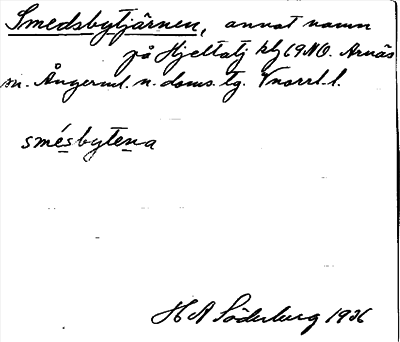 Smedsbytjärnen, annat namn
på Hjeltatj kbl 19NO. Arnäs
sn. Ångerml. n. doms. tg. Vnorrl. l.
smésbytena
H A Söderberg 1936